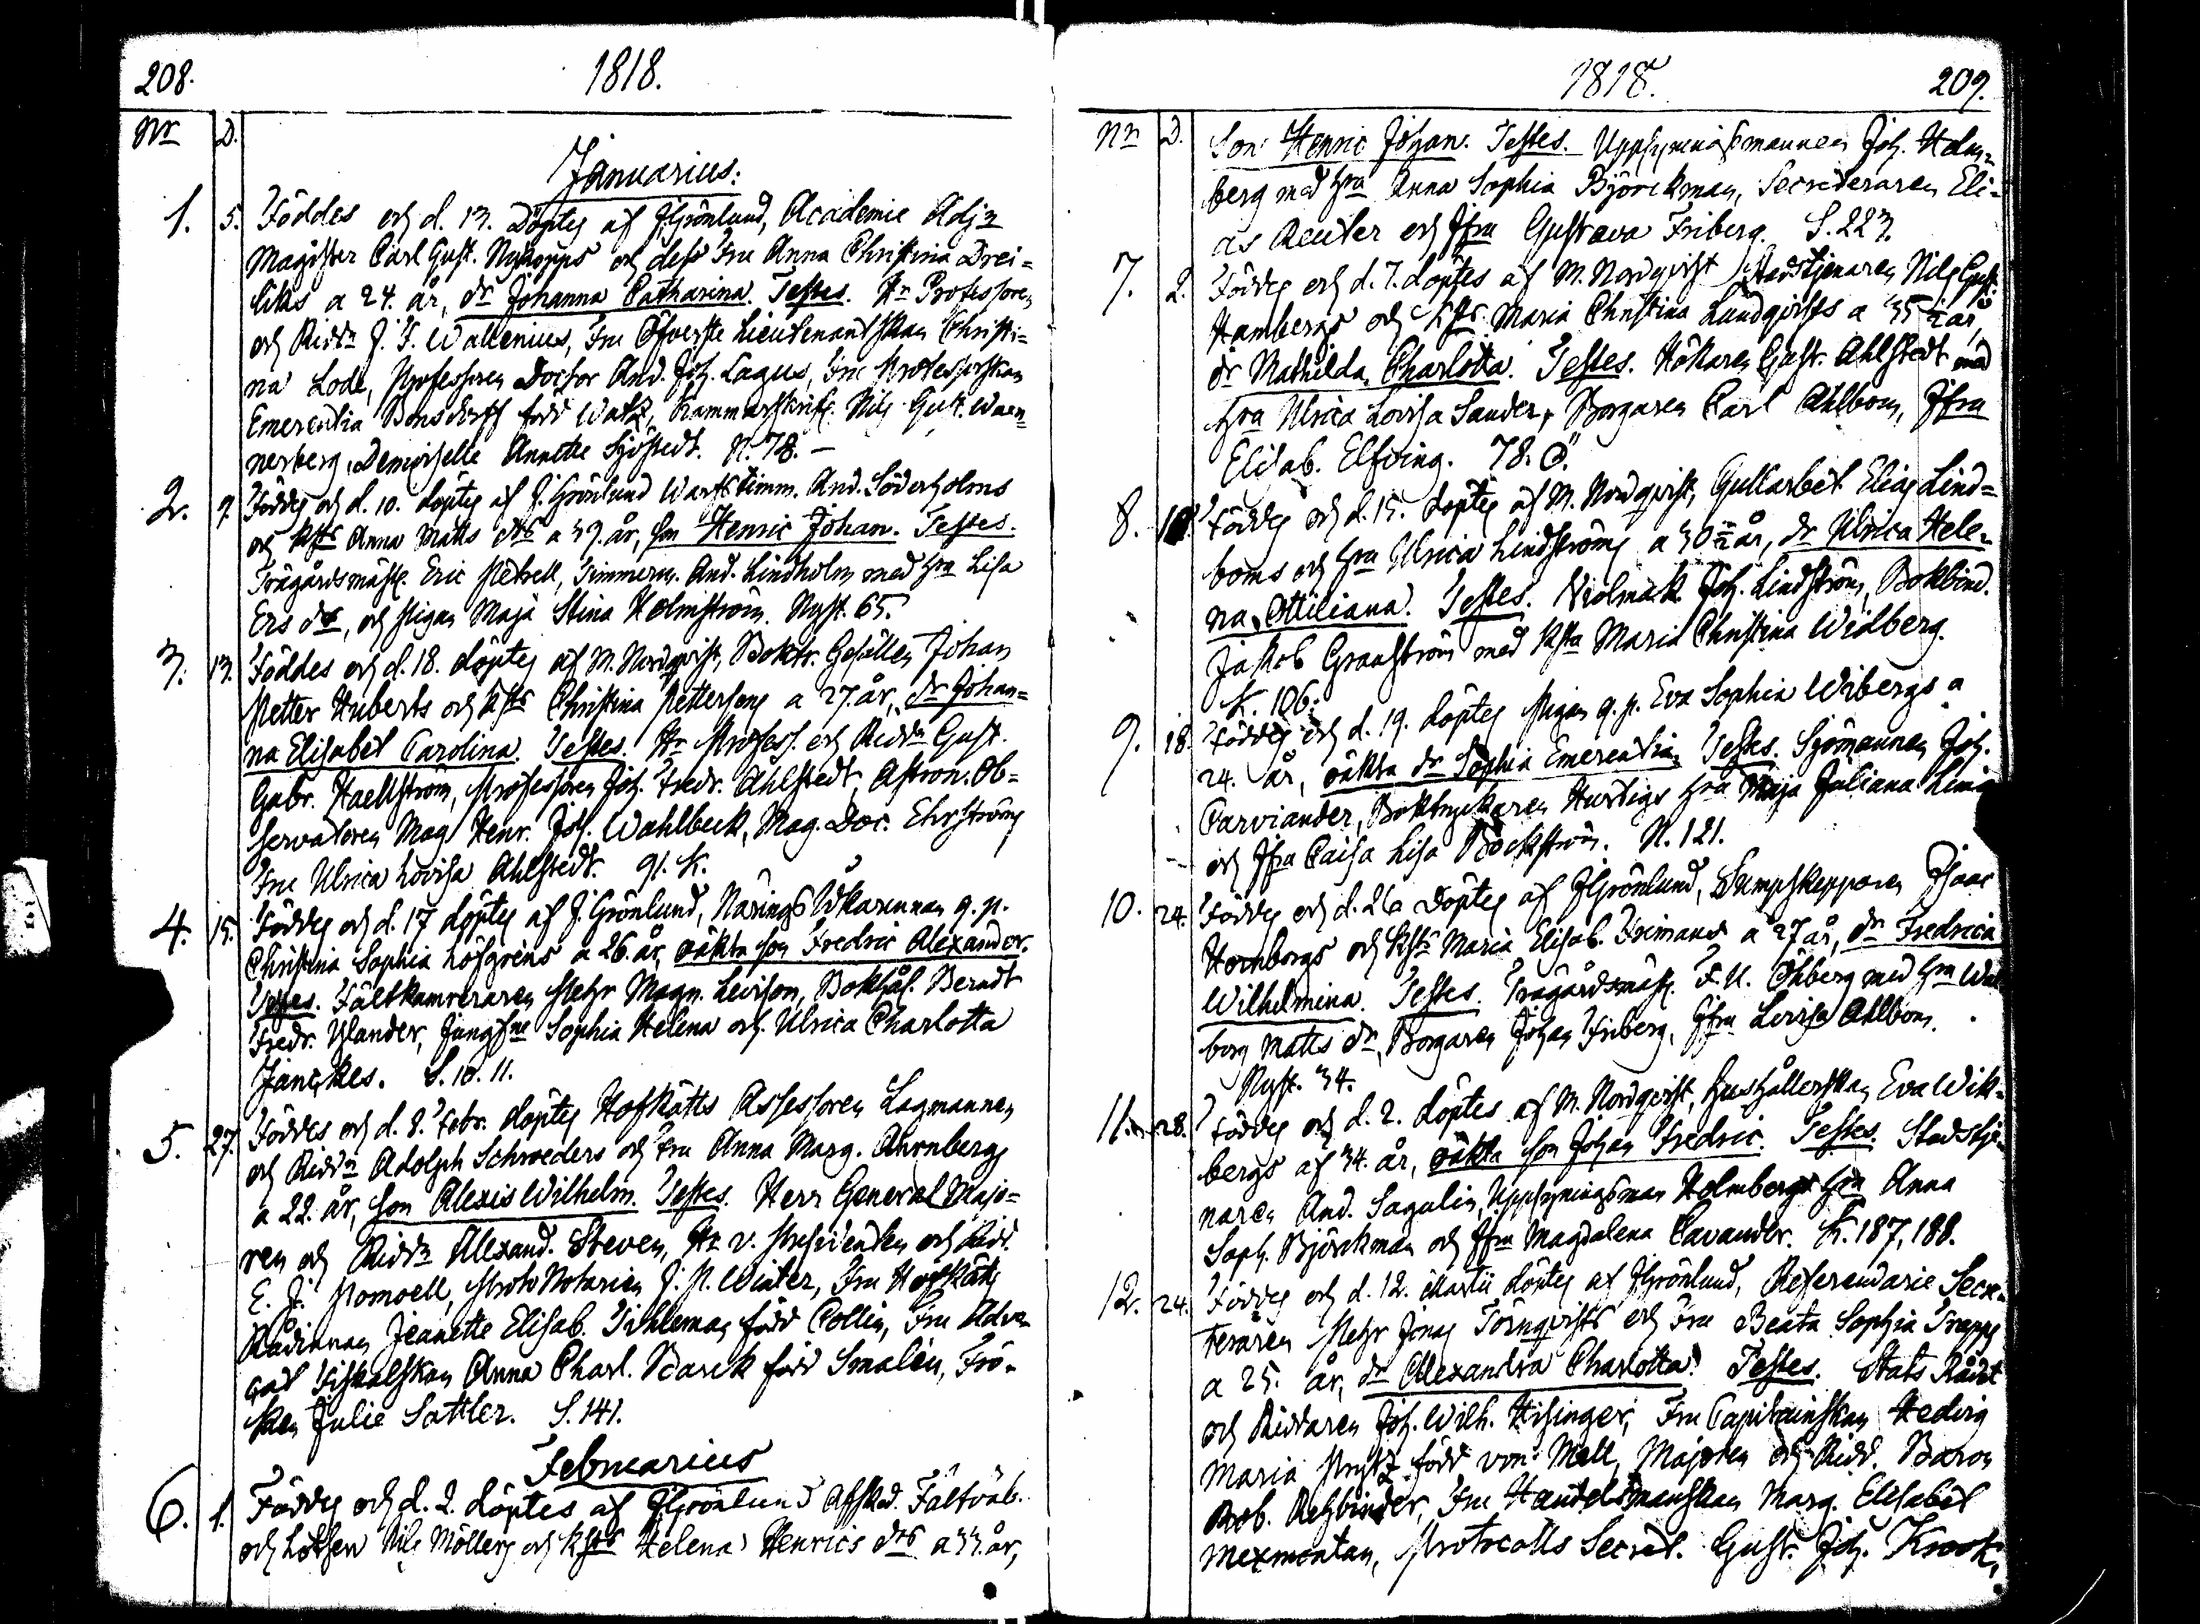 208.
1818.
Nr D.
Januarius.
1. 5. Föddes och d. 13. Döptes af J Grönlund, Academie Adj:n
Magister Carl Gust. Nykopps och dess Fru Anna Christina Drei=
liks a 24. år, dr Johanna Catharina. Testes. Hr Professoren
och Ridd:n J. F. Wallenius, Fru Öfverste Lieutenantskan Christi=
na Lode, Professoren Doctor And. Joh. Lagus, Fru Professorskan
Emerentia Bonsdorff född Watz, Kammarskrifv. Nils Gust. Waen=
nerberg, Demoiselle Annette Sjöstedt. N. 78. –
2. 9. Föddes och d. 10. döptes af J. Grönlund Warfstimm. And. Söderholms
och Hstrs Anna Matts dtrs a 39. år, son Henric Johan. Testes.
Trägårdsmäst. Eric Petrell, Timmerm. And. Lindholm med Hru Lisa
Ers dr, och Pigan Maja Stina Holmström. Nyst. 65.
3. 13. Föddes och d. 18. döptes af M. Nordqvist, Boktr. Gesällen Johan
Petter Huberts och Hstrs Christina Pettersons a 27. år, dr Johan=
na Elisabet Carolina. Testes. Hr Profess. och Ridd:n Gust.
Gabr. Haellström, Professoren Joh. Fredr. Ahlstedt, Astron. Ob=
servatoren Mag. Henr. Joh. Wahlbeck, Mag. Doc. Ehrström,
Fru Ulrica Lovisa Ahlstedt. 91. K.
4. 15. Föddes och d. 17 döptes af J. Grönlund, Närings Idkarinnan q. p.
Christina Sophia Löfgrens a 26. år, oäkta son Fredric Alexander.
Testes. Fältkamreraren Pehr Magn. Levison, Bokhål. Berndt
Fredr. Ylander, Jungfrue Sophia Helena och Ulrica Charlotta
Jänckes. S. 10. 11.
5. 27. Föddes och d. 8. Febr. döptes Hofrätts Assessoren Lagmannen
och Ridd:n Adolph Schroeders och Fru Anna Marg. Ahrnbergs
a 22. år, son Alexis Wilhelm. Testes. Herr General Majo=
ren och Ridd:n Alexand. Steven, Hr v. Presidenten och Ridd.
E. J. Pomoell, Proto Notarien J. P. Winter, Fru Hofrätts
Rådinnan Jeanette Elisab. Tihleman född Collin, Fru Advo=
cat Fiskalskan Anna Charl. Barck född Smalén, Frö=
ken Julie Sattler. S. 141.
Februarius
6. 1. Föddes och d. 2. döptes af J Grönlund Afsked. Fältväb.
och Lotsen Nils Möllers och Hstrs Helena Henrics dtrs a 33. år,
1818. 209.
Nr D.
Son Henric Johan. Testes. Uppsyningsmannen Joh. Holm=
berg med Hru Anna Sophia Björckman, Secreteraren Eli=
as Reuter och Jfru Gustava Friberg. S. 223.
7. 2. Föddes och d. 7. döptes af M. Nordqvist Stadstjenaren Nils Gust.
Hambergs och Hstrs Maria Christina Lundqvists a 35 1/2 år,
dr Mathilda Charlotta. Testes. Hökaren Gust. Ahlstedt med
Hru Ulrica Lovisa Sander, Borgaren Carl Ahlbom, Jfru
Elisab. Elfving. 78. Ö.
8. 10. Föddes och d. 15. döptes af M. Nordqvist, Gullarbet. Elias Lind=
boms och Hru Ulrica Lindströms a 30 1/2 år, dr Ulrica Hele=
na Ottiliana. Testes. Violmak. Joh. Lindström, Bokbind.
Jakob Granström med Hstru Maria Christina Widberg.
K. 106.
9. 18. Föddes och d. 19. döptes Pigan q. p. Eva Sophia Wibergs a
24. år, oäkta dr Sophia Emerentia. Testes. Sjömannen Joh.
Carviander, Boktryckaren Hurtigs Hru Maja Juliana
och Jfru Caisa Lisa Böckström. N. 121.
10. 24. Föddes och d. 26 döptes af J Grönlund, Sumpskepparen Isaac
Hornborgs och Hstrs Maria Elisab. Frimans a 27 år, dr Fredrica
Wilhelmina. Testes. Trägårdsmäst. F. U. Öhberg med Hru Wal
borg Matts dr, Borgaren Johan Friberg, Jfru Lovisa Ahlbom.
Nyst. 34.
11. 28. Föddes och d. 2. döptes af M. Nordqvist, Hushållerskan Eva Wik=
bergs af 34. år, oäkta son Johan Fredric. Testes. Stadstje=
naren And. Sagulin, Uppsyningsman Holmbergs Hru Anna
Soph. Björckman och Jfru Magdalena Cavander. K. 187, 188.
12. 24. Föddes och d. 12. Martii döptes af J Grönlund, Referendarie Secre=
teraren Pehr Jonas Törnqvists och Fru Beata Sophia Trapps
a 25. år, dr Alexandra Charlotta. Testes. Stats Rådet
och Riddaren Joh. Wilh. Hisinger, Fru Capitainskan Hedvig
Maria Prytz född von Mell, Majoren och Ridd. Baron
Rob. Rehbinder, Fru Handelsmanskan Marg. Elisabet
Mexmontan, Protocolls Secret. Gust. Joh. Krook,